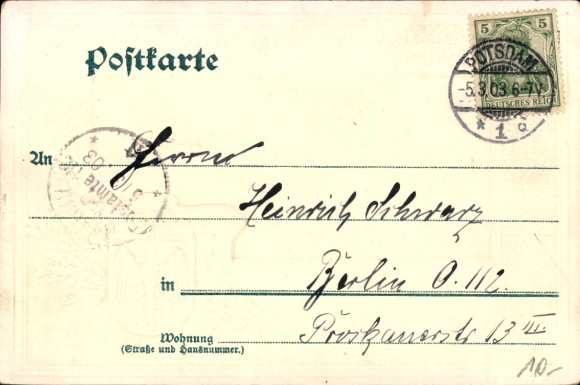 Postkarte
5 5
DEUTSCHES REICH
POTSDAM
-5.3.03.6-7V.
* 1 c
An Herrn
Heinrich Schwarz
in Berlin O. 112.
Wohnung Proskauerstr. 13 III.
(Straße und Hausnummer.)
10.-